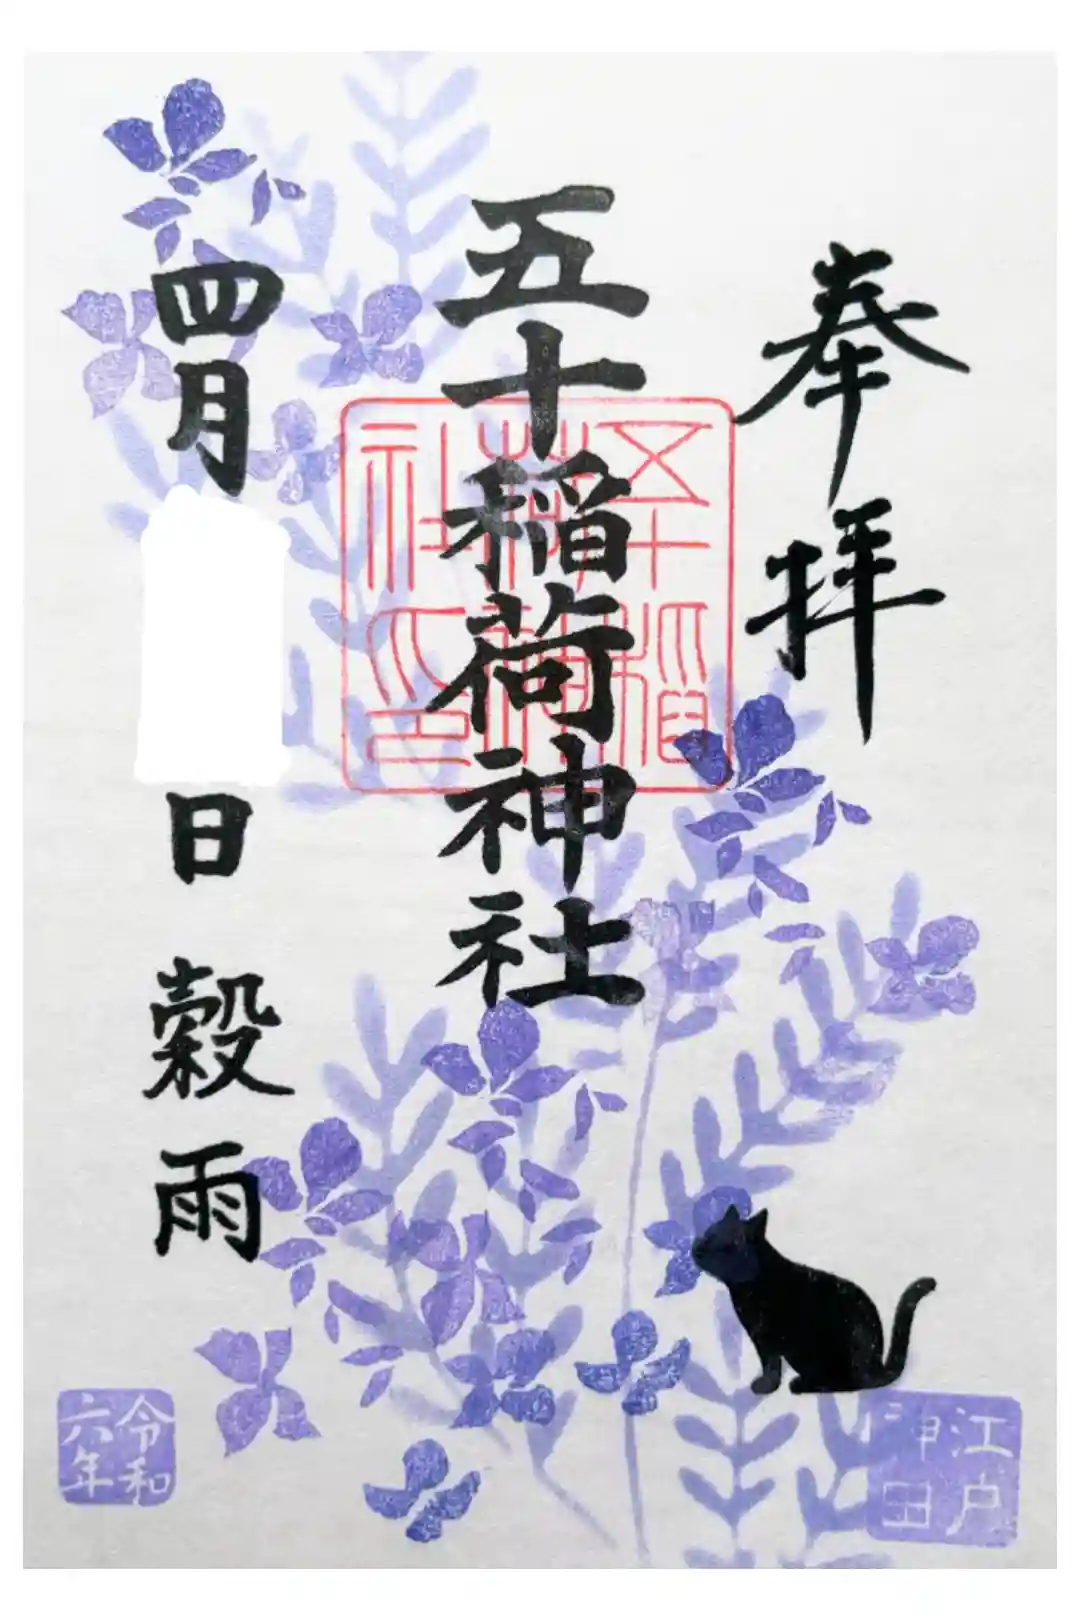 奉拝
五十稲荷神社
五十稲荷神社印
四月
日 穀雨
江戸
神田
令和
六年